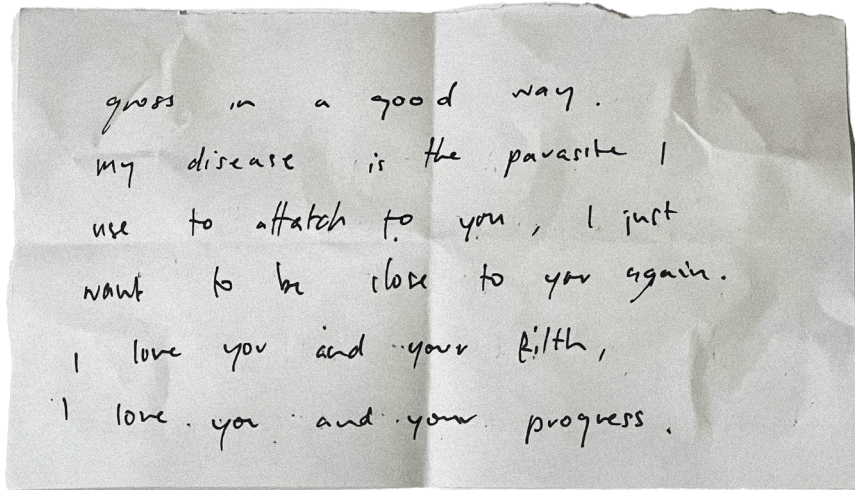 gross in a good way.
my disease is the parasite I
use to attatch to you, I just
want to be close to you again.
I love you and your filth,
I love you and your progress.